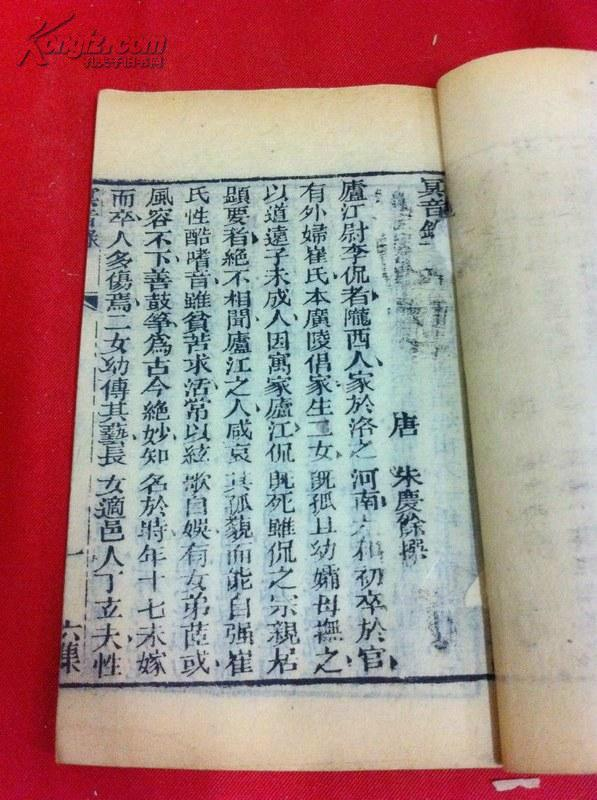 Kongfz.com
孔夫子旧书网
冥音錄
唐 朱慶餘撰
廬江尉李侃者隴西人家於洛之河南太和初卒於官
有外婦崔氏本廣陵倡家生二女既孤且幼孀母撫之
以道遠子未成人因寓家廬江侃既死雖侃之宗親居
顯要者絶不相聞廬江之人咸哀其孤藐而能自强崔
氏性酷嗜音雖貧苦求活常以絃歌自娛有女弟茝或
風容不下善鼓箏爲古今絶妙知名於時年十七未嫁
而卒人多傷焉二女幼傳其藝長女適邑人丁立夫性
冥音錄 一 六集